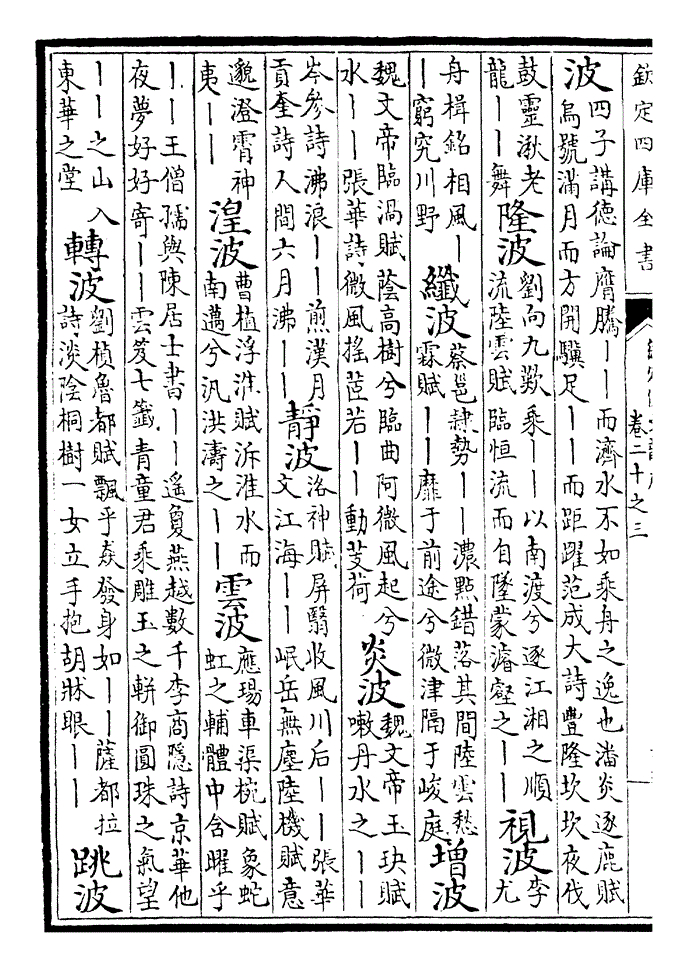 欽定四庫全書
卷二十之三
波
四子講德論膺騰丨丨而濟水不如乘舟之逸也潘炎逐鹿賦
烏號滿月而方開驥足丨丨而距躍范成大詩豐隆坎坎夜伐
鼓靈湫老
龍丨丨舞
隆波
劉向九歎乘丨丨以南渡兮逐江湘之順
流陸雲賦臨恒流而自墜蒙濬壑之丨丨
視波
李
尤
舟楫銘相風丨
丨窮究川野
纖波
蔡邕隷勢丨丨濃點錯落其間陸雲愁
霖賦丨丨靡于前途兮微津隔于峻庭
增波
魏文帝臨渦賦蔭高樹兮臨曲阿微風起兮
水丨丨張華詩微風搖茝若丨丨動芰荷
炎波
魏文帝玉玦賦
嗽丹水之丨丨
岑參詩沸浪丨丨煎漢月
貢奎詩人間六月沸丨丨
靜波
洛神賦屏翳收風川后丨丨張華
文江海丨丨岷岳無塵陸機賦意
邈澄霄神
夷丨丨
湟波
曹植浮淮賦泝淮水而
南邁兮汎洪濤之丨丨
雲波
應瑒車渠椀賦象蛇
虹之輔體中含曜乎
丨丨王僧孺與陳居士書丨丨遥敻燕越數千李商隱詩京華他
夜夢好好寄丨丨雲笈七籤青童君乘雕玉之軿御圓珠之氣望
丨丨之山入
東華之堂
轉波
劉楨魯都賦飄乎猋發身如丨丨薩都拉
詩淡陰桐樹一女立手抱胡牀眼丨丨
跳波